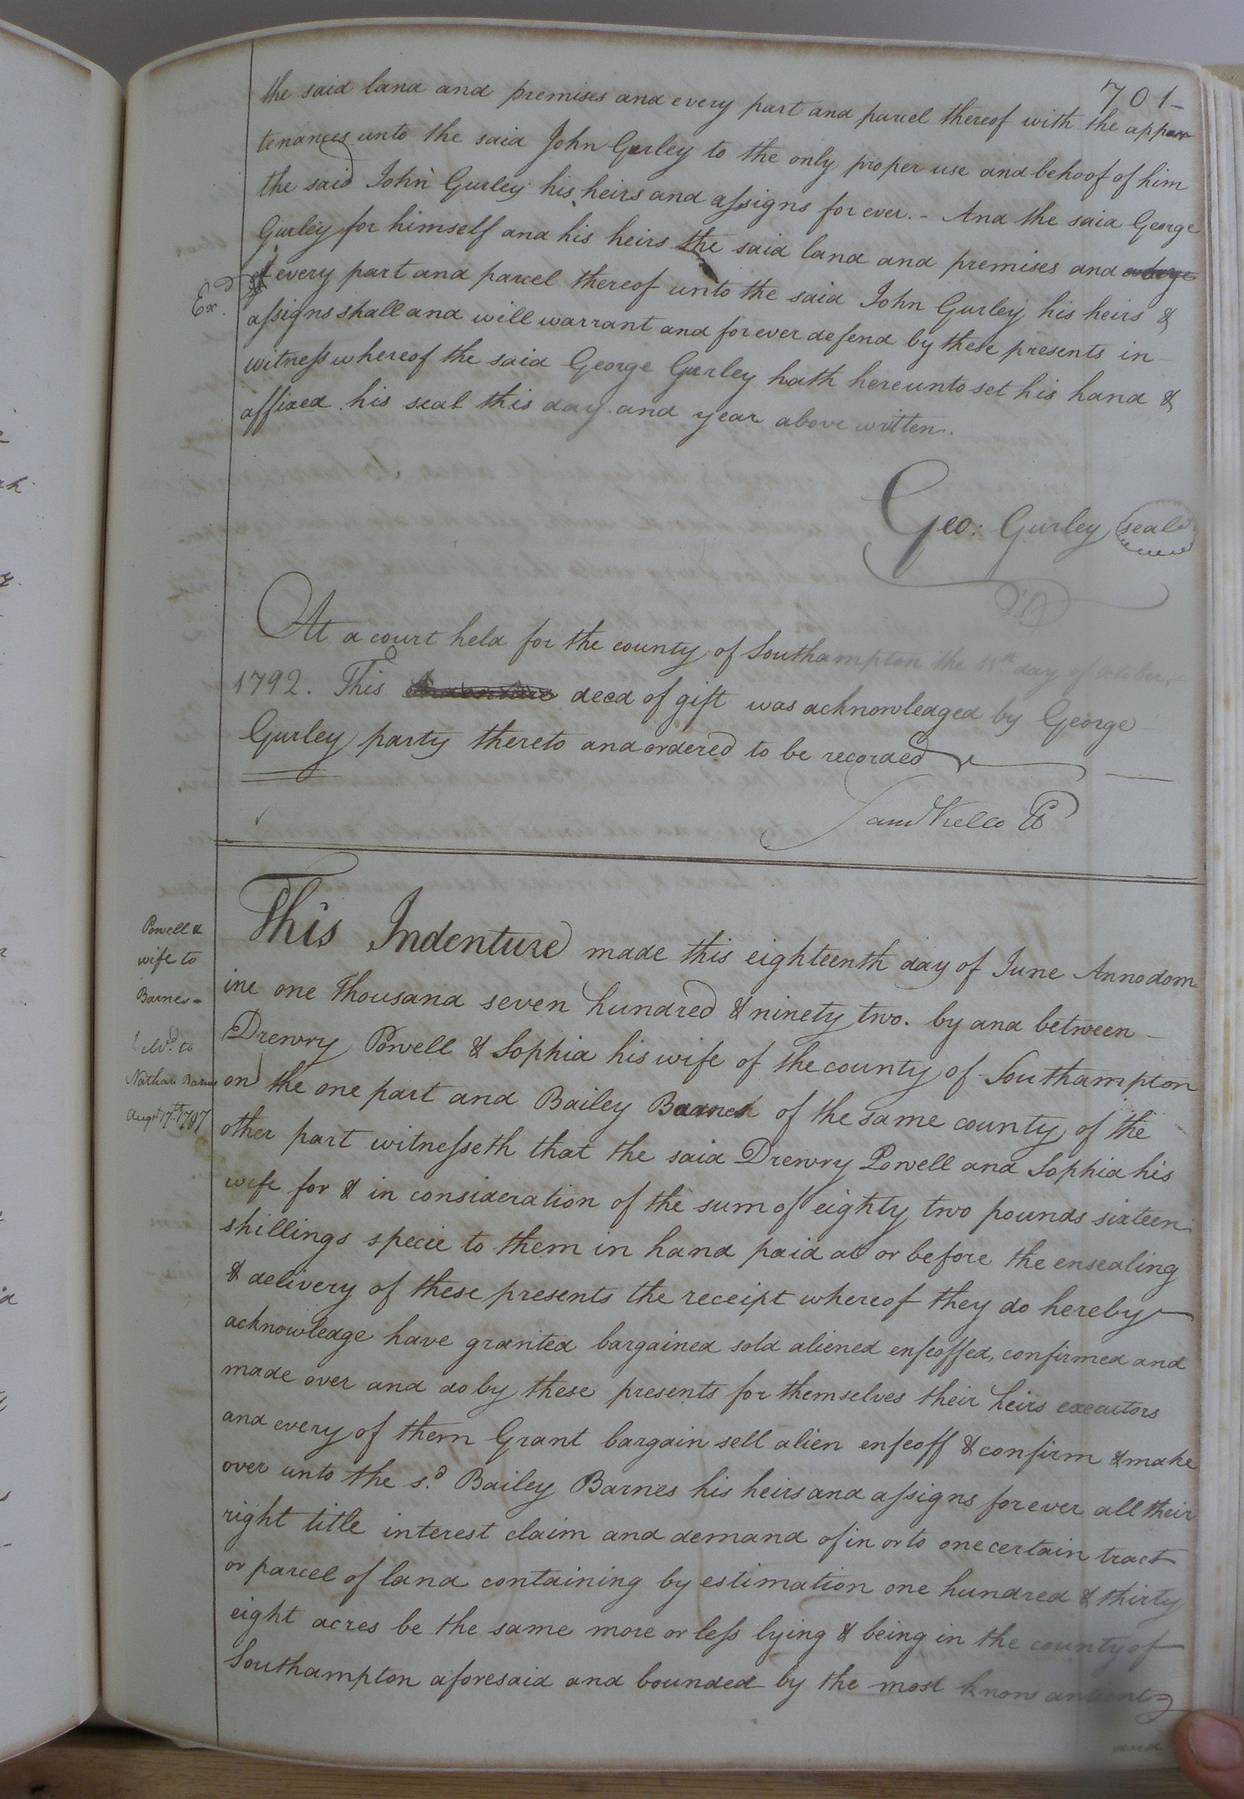 701-
the said land and premises and every part and parcel thereof with the appur
tenances unto the said John Gurley to the only proper use and behoof of him
the said John Gurley his heirs and assigns for ever. - And the said George
Gurley for himself and his heirs the said land and premises and
every part and parcel thereof unto the said John Gurley his heirs &
Exd.
assigns shall and will warrant and forever defend by these presents in
witness whereof the said George Gurley hath hereunto set his hand &
affixed his seal this day and year above written.
Geo: Gurley seal
At a court held for the county of Southampton the 11th day of October,
1792. This deed of gift was acknowledged by George
Gurley party thereto and ordered to be recorded
Saml Kello
Powell &
wife to
Barnes -
Dd. to
Nathan Barnes
Augt 17th 1797
This Indenture made this eighteenth day of June Anno dom
ine one thousand seven hundred & ninety two. by and between
Drewry Powell & Sophia his wife of the county of Southampton
on the one part and Bailey Barnes of the same county of the
other part witnesseth that the said Drewry Powell and Sophia his
wife for & in consideration of the sum of eighty two pounds sixteen
shillings specie to them in hand paid at or before the ensealing
& delivery of these presents the receipt whereof they do hereby
acknowledge have granted bargained sold aliened enfeoffed, confirmed and
made over and do by these presents for themselves their heirs executors
and every of them Grant bargain sell alien enfeoff & confirm & make
over unto the sd. Bailey Barnes his heirs and assigns for ever all their
right title interest claim and demand of in or to one certain tract
or parcel of land containing by estimation one hundred & thirty
eight acres be the same more or less lying & being in the county of
Southampton aforesaid and bounded by the most known antient
and